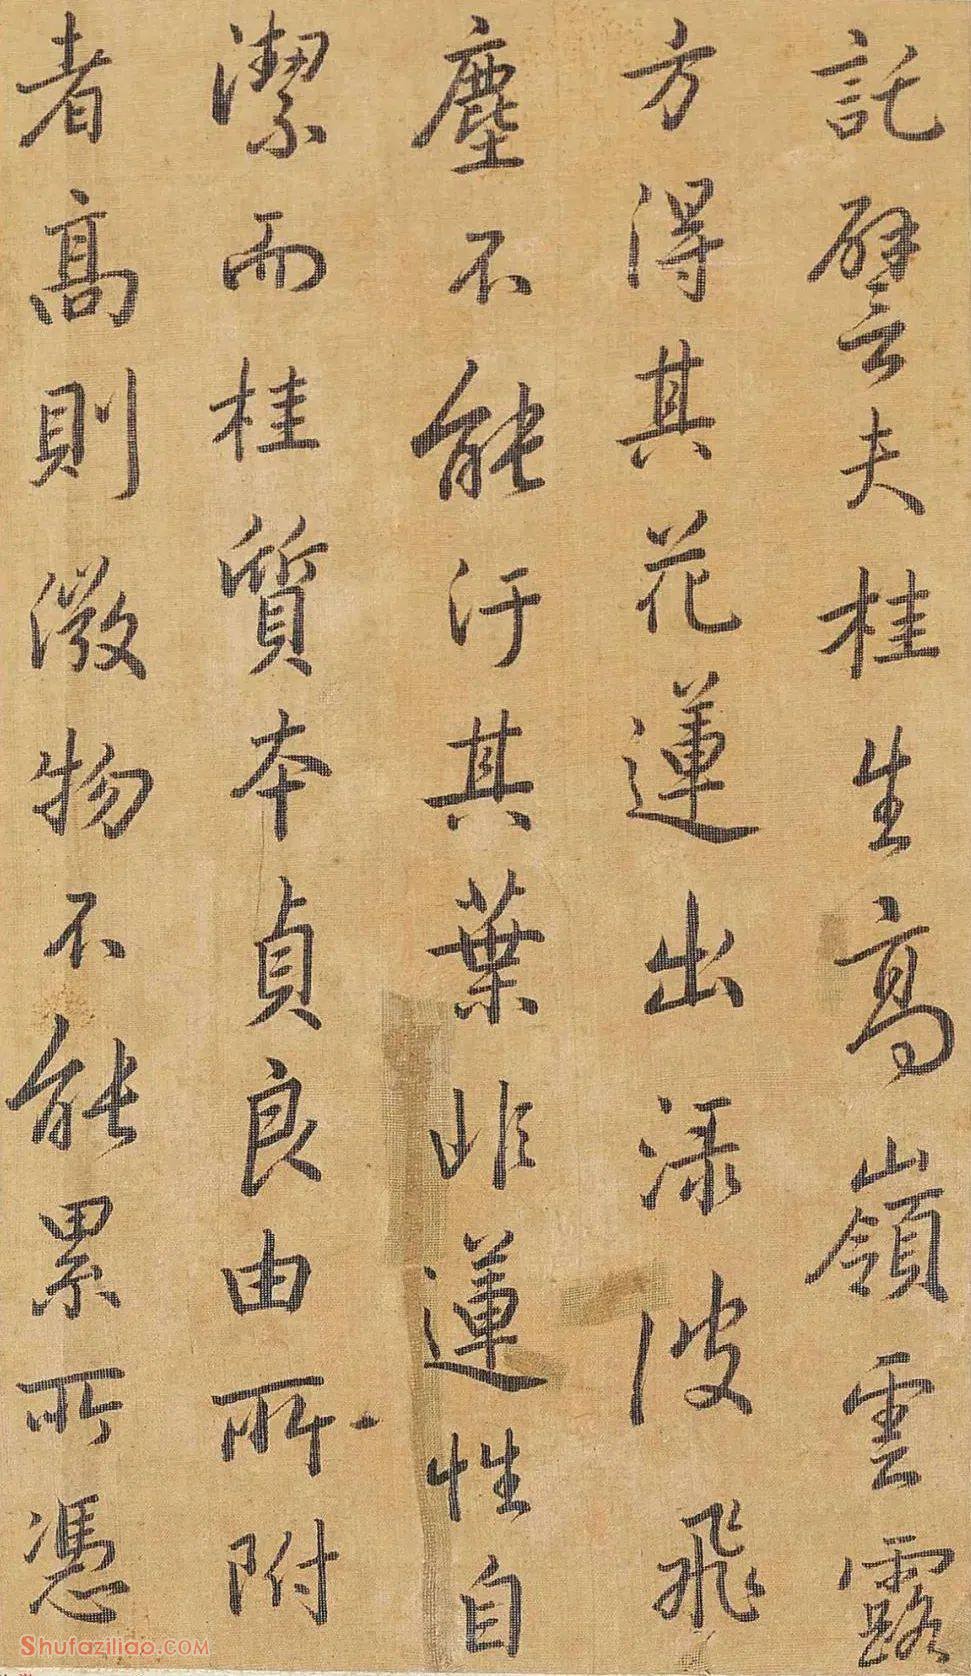 託譬夫桂生高嶺雲露
方得其花蓮出淥波飛
塵不能汙其葉非蓮性自
潔而桂質本貞良由所附
者高則微物不能累所憑
Shufaziliao.COM